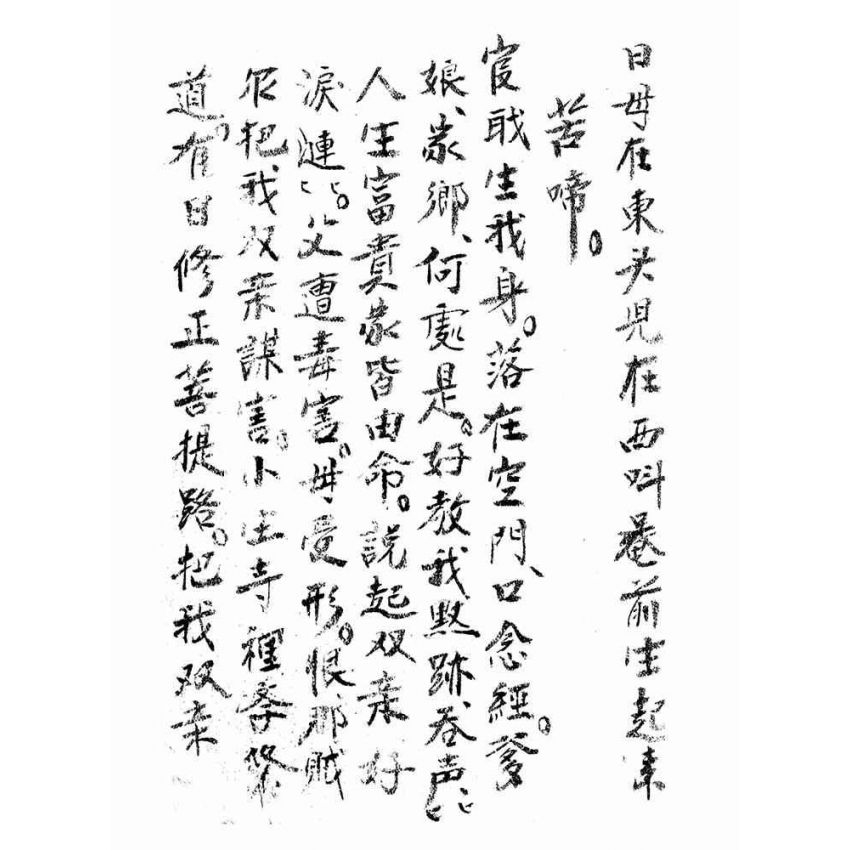 日母在東头児在西呌巷前生起来
苦啼。
宦戝生我身。落在空門、口念經。爹
娘、家鄉、何處是。好教我愁跡、吞声
人生富貴家皆由命。説起双亲好
淚漣〻。父遭毒害。毋受形。恨、那賊
你把、我双亲謀害。小生寺裡存修
道。有日修正菩提路。把我双亲